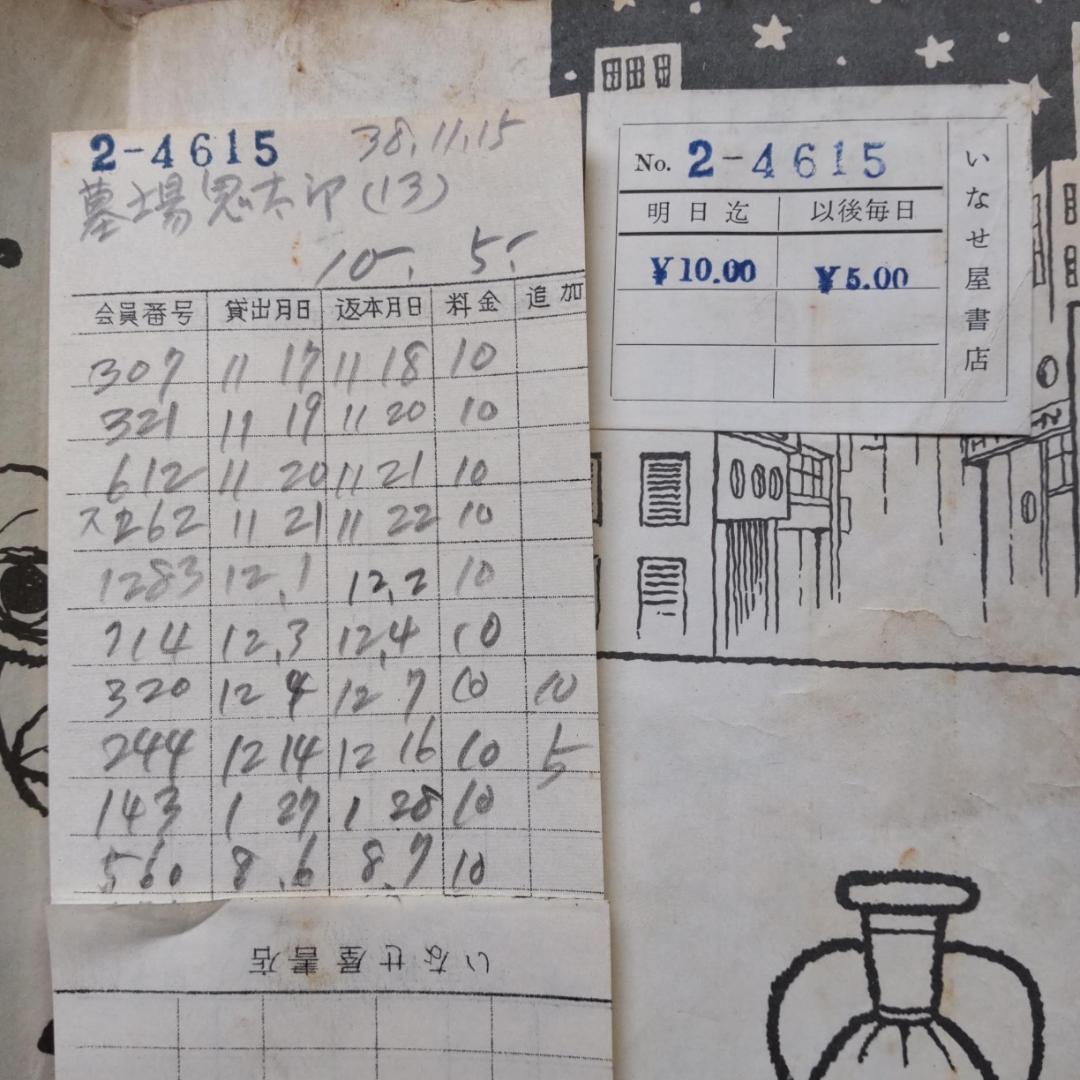 2-4615 38.11.15
墓場鬼太郎(13)
10-. 5.-
会員番号 貸出月日 返本月日 料金 追加
307 11 17 11 18 10
321 11 19 11 20 10
612 11 20 11 21 10
ス262 11 21 11 22 10
1283 12.1 12.2 10
714 12.3 12.4 10
320 12 4 12 7 10 10
244 12 14 12 16 10 5
143 1 27 1 28 10
560 8.6 8.7 10
いなせ屋書店
No. 2-4615
明日迄 以後毎日
¥10.00 ¥5.00
いなせ屋書店